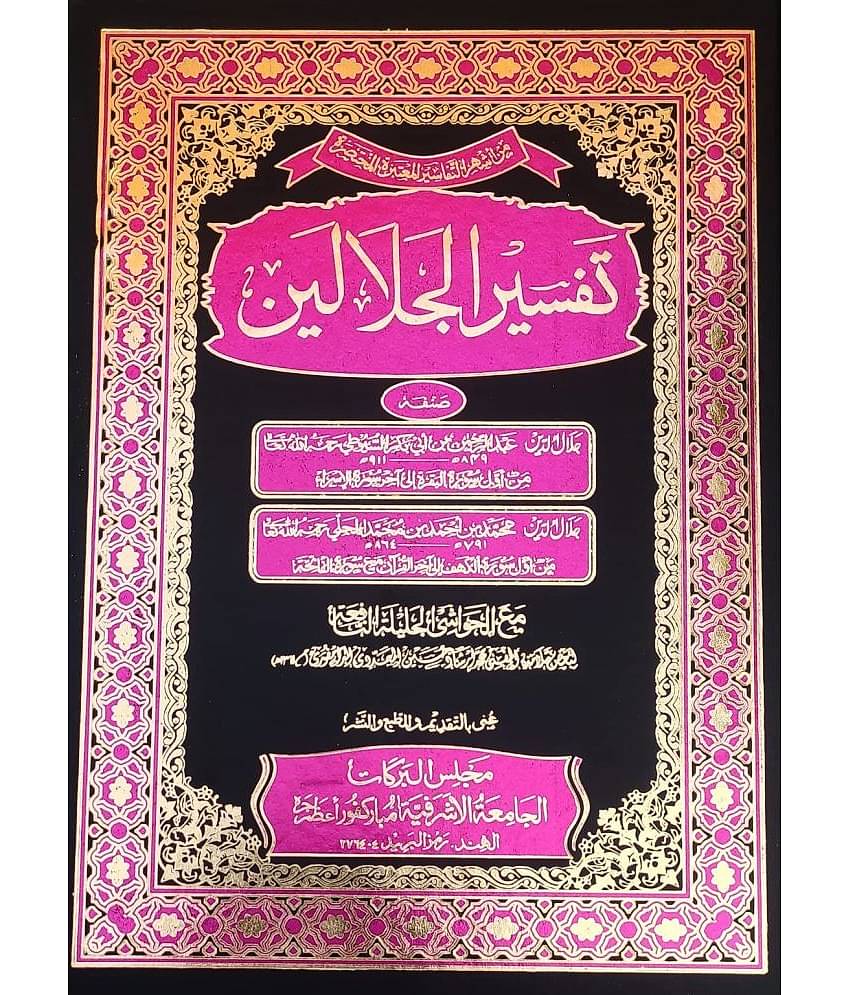 من أشهر التفاسير المعتبرة المختصرة
تفسير الجلالين
صنفه
جلال الدين عبد الرحمن بن أبي بكر السيوطي رحمه الله تعالى
٨٤٩ھ ٩١١ھ
من أول سورة البقرة إلى آخر سورة الإسراء
جلال الدين محمد بن أحمد بن محمد المحلي رحمه الله تعالى
٧٩١ھ ٨٦٤ھ
من أول سورة الكهف إلى آخر القرآن مع سورة الفاتحة
مع الحواشي الجليلة النافعة
عني بالتقديم والطبع والنشر
مجلس البركات
الجامعة الأشرفية مبارکفور أعظم جره
الهند. رمز البريد ٢٧٦٤٠٤